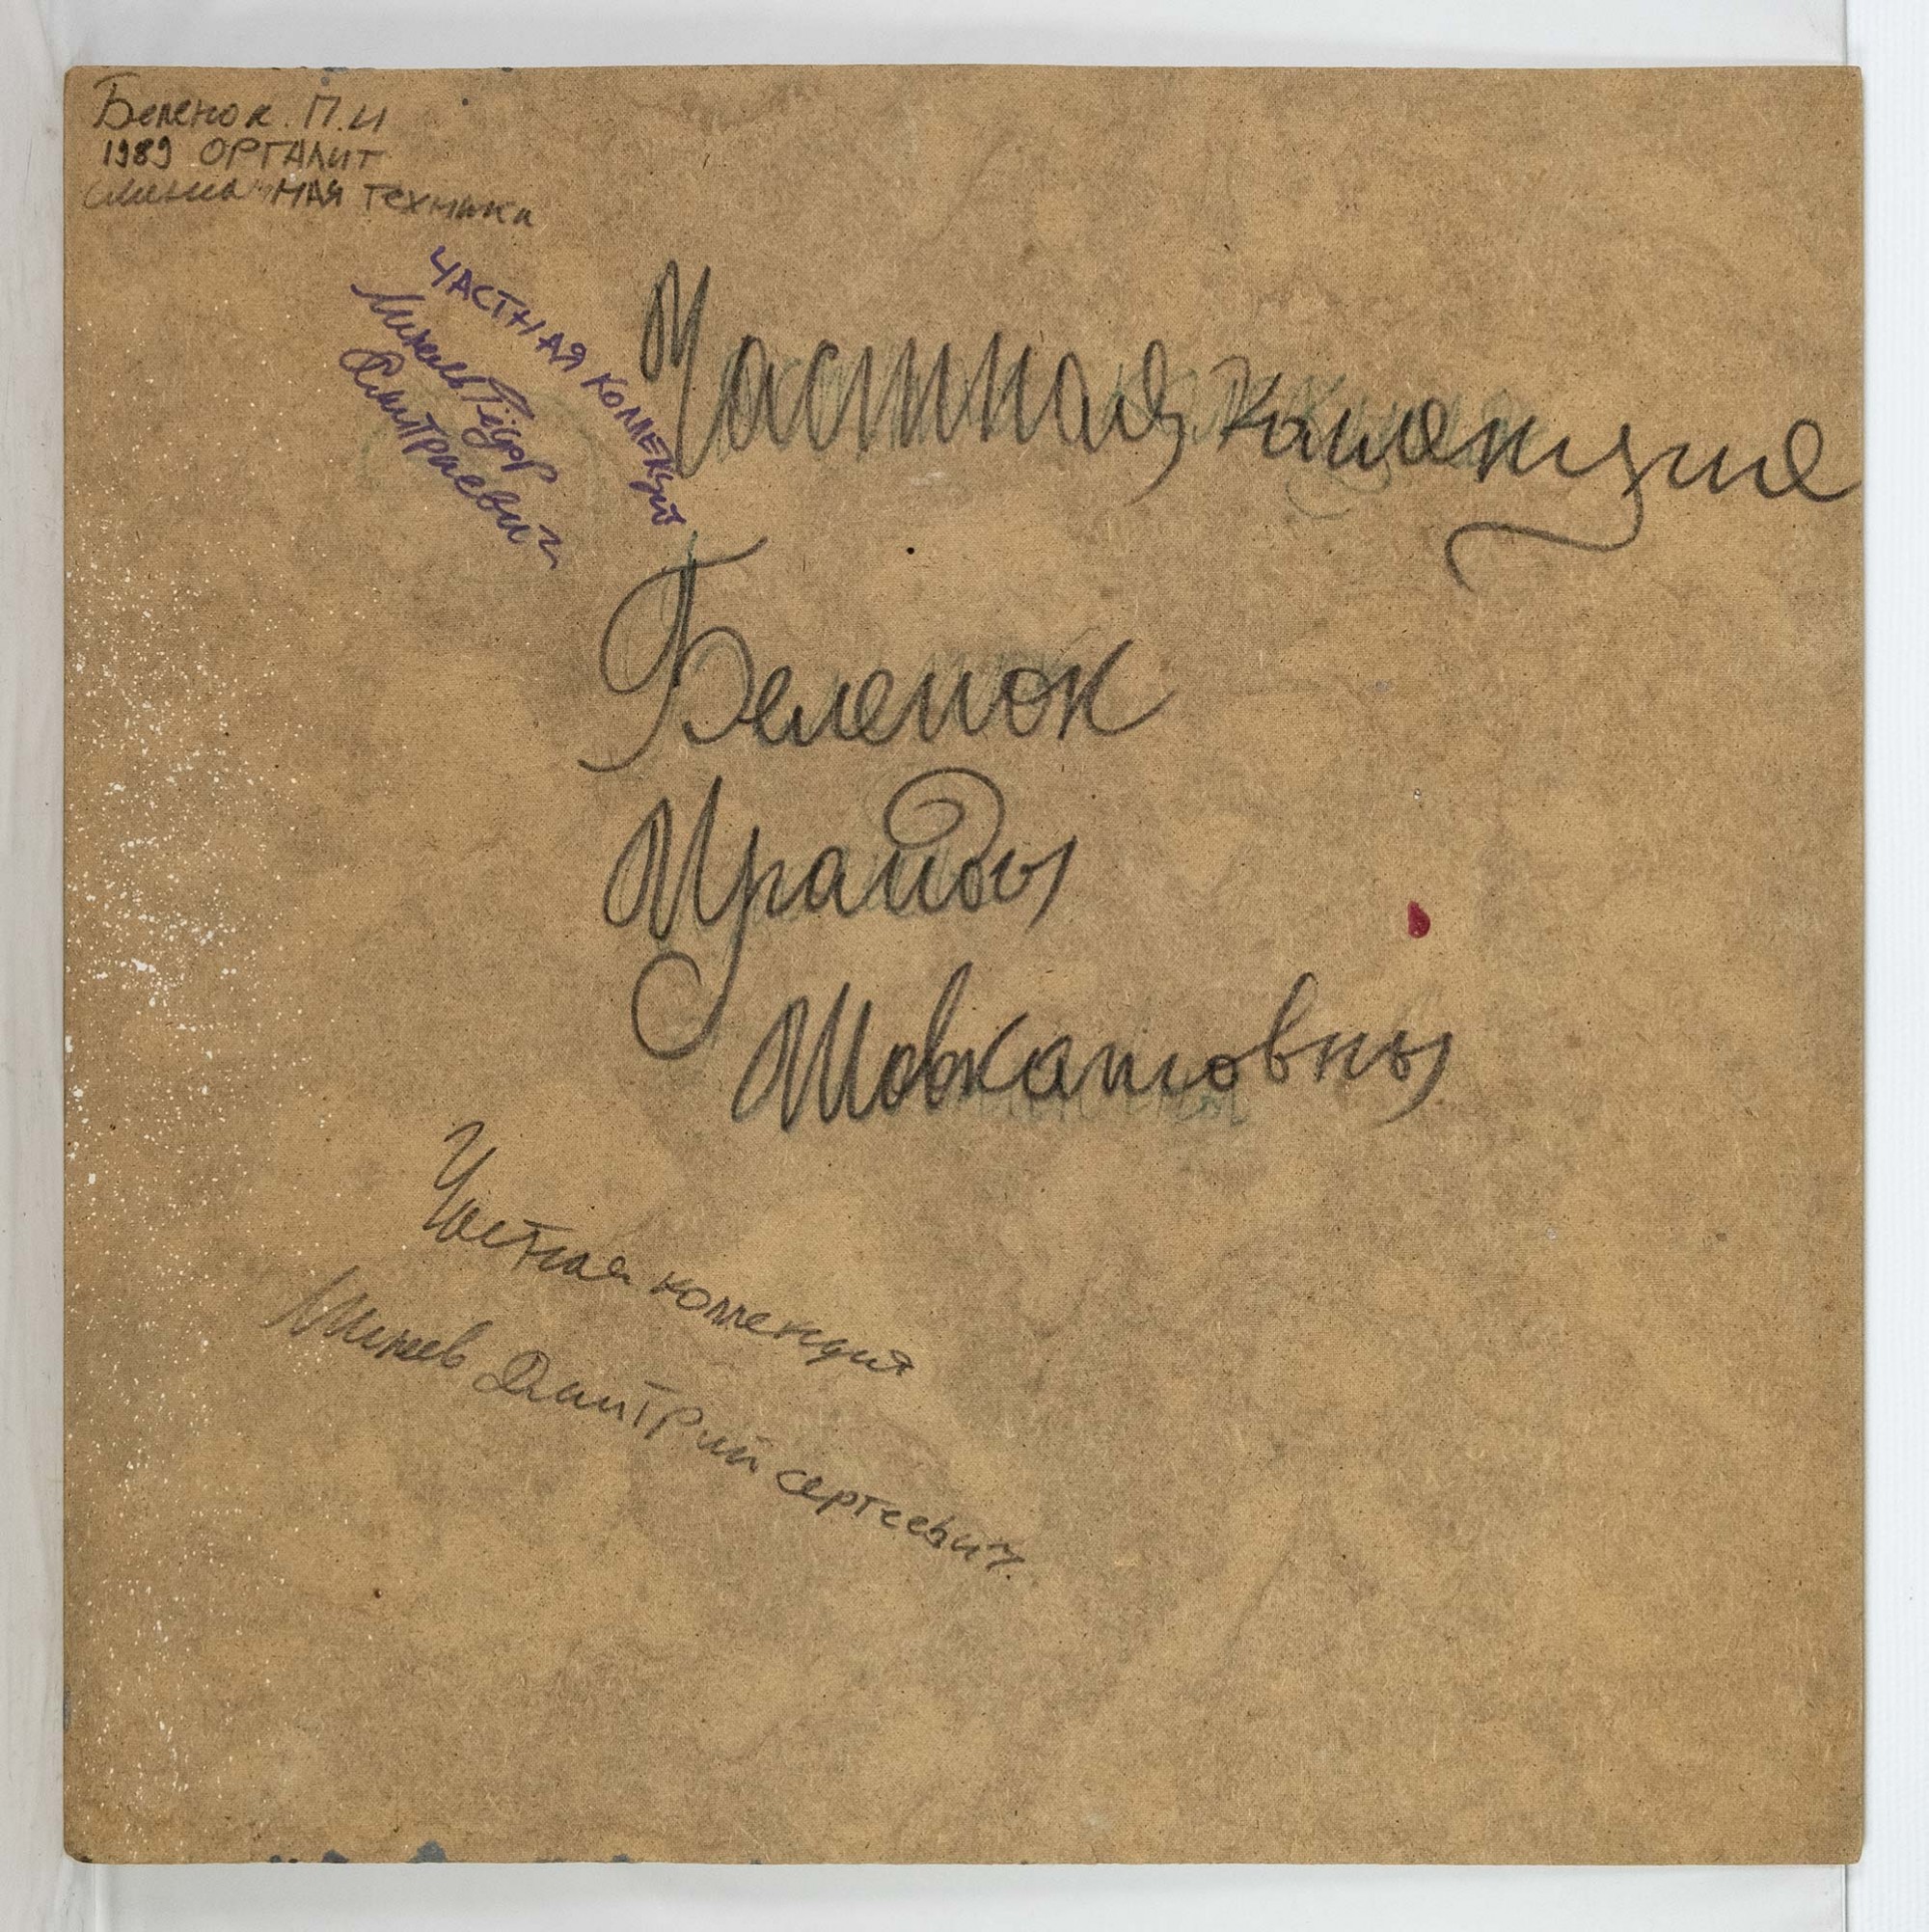 Беленок П.И
1989 ОРГАЛИТ
смешанная техника
ЧАСТНАЯ КОЛЛЕКЦИЯ
Минеев Фёдор
Дмитриевич
Частная коллекция
Беленок
Ираиды
Шовкатовны
Частная коллекция
Минеев Дмитрий Сергеевич.